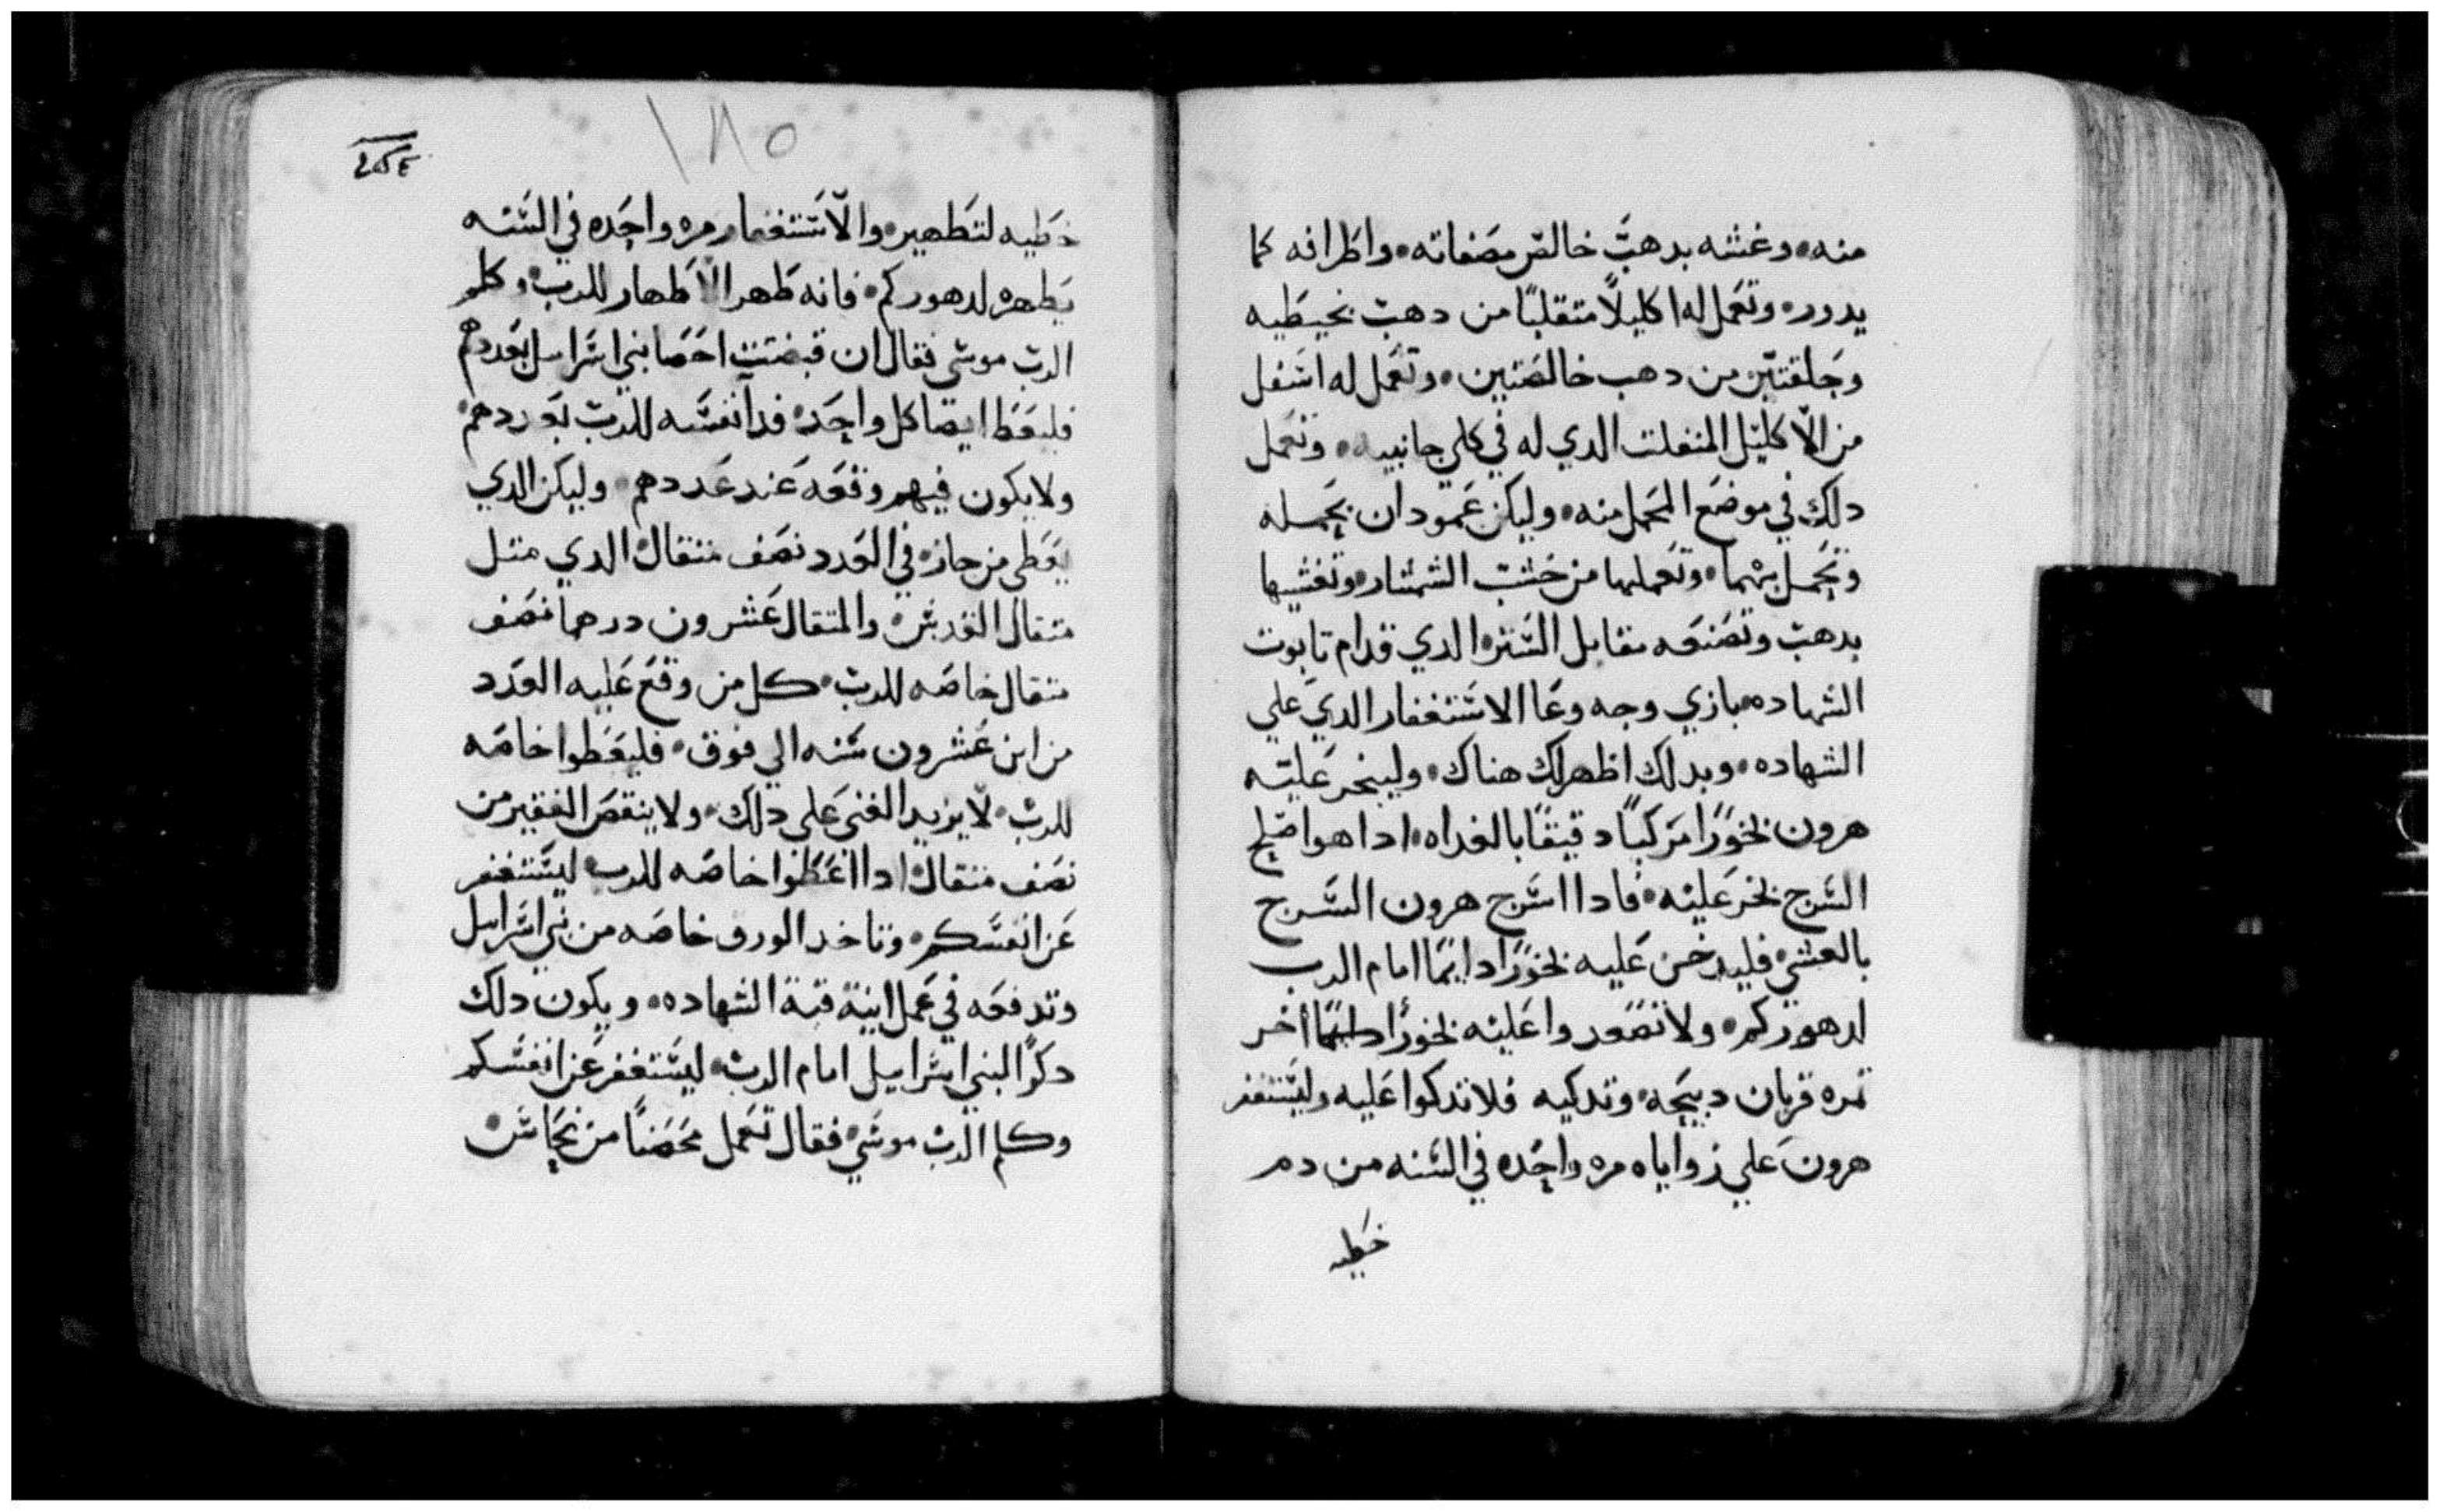 منه٠ وغشه بدهب خالص مصفاته٠ واطرافه كما
يدور٠ وتعمل له اكليلًا متقلبًا من دهب بخيطيه
وحلقتين من دهب خالصتين٠ وتعمل له اسفل
من الاكليل المنفلت الدي له في كلي جانبيه٠ وتعمل
دلك في موضع المحمل منه٠ وليكن عمودان بحمله
وتحمل بهما٠ وتعملهما من خشب الشمشار٠ وتغشيها
بدهب وتصنعه مقابل الستر٠ الدي قدام تابوت
الشهاده٠ بازي وجه وعا الاستغفار الدي علي
الشهاده٠ وبدلك اظهر لك هناك٠ وليبخر عليه
هرون بخورًا مركبًا دقيقًا بالغداه٠ ادا هو اصلح
السرج بخر عليه٠ فادا اسرج هرون السرج
بالعشي٠ فليدخن عليه بخورًا دايمًا امام الرب
لدهوركم٠ ولا تصعدوا عليه بخورًا اخر
ثمره قربان دبيحه٠ وتدكيه فلا تدكوا عليه وليستغفر
هرون علي زواياه مره واحده في السنه من دم
خطيه
١٨٥
خطيه لتطهير٠ والاستغفار مره واحده في السنه
يطهره لدهوركم٠ فانه طهر الاطهار للرب٠ وكلم
الرب موسي فقال ان قبضت احصا بني اسراييل بعددهم
فليعط ايضا كل واحد٠ فدا نفسه للرب بعددهم٠
ولا يكون فيهم وقعه عند عددهم٠ وليكن الدي
يعطي من جاز٠ في العدد نصف متقال٠ الدي متل
متقال القدس٠ والمتقال عشرون درهما نصف
متقال خاصه للرب٠ كل من وقع عليه العدد
من ابن عشرون سنه الي فوق٠ فليعطوا خاصه
للرب٠ لا يزيد الغني علي دلك٠ ولا ينقص الفقير من
نصف متقال٠ ادا اعطوا خاصه للرب ليستغفر
عن انفسكم٠ وتاخد الورق خاصه من بني اسراييل
وتدفعه في عمل ابنية قبة الشهاده٠ ويكون دلك
دكرًا لبني اسراييل امام الرب٠ ليستغفر عن انفسكم
وكلم الرب موسي٠ فقال تعمل محضنًا من نحاس٠